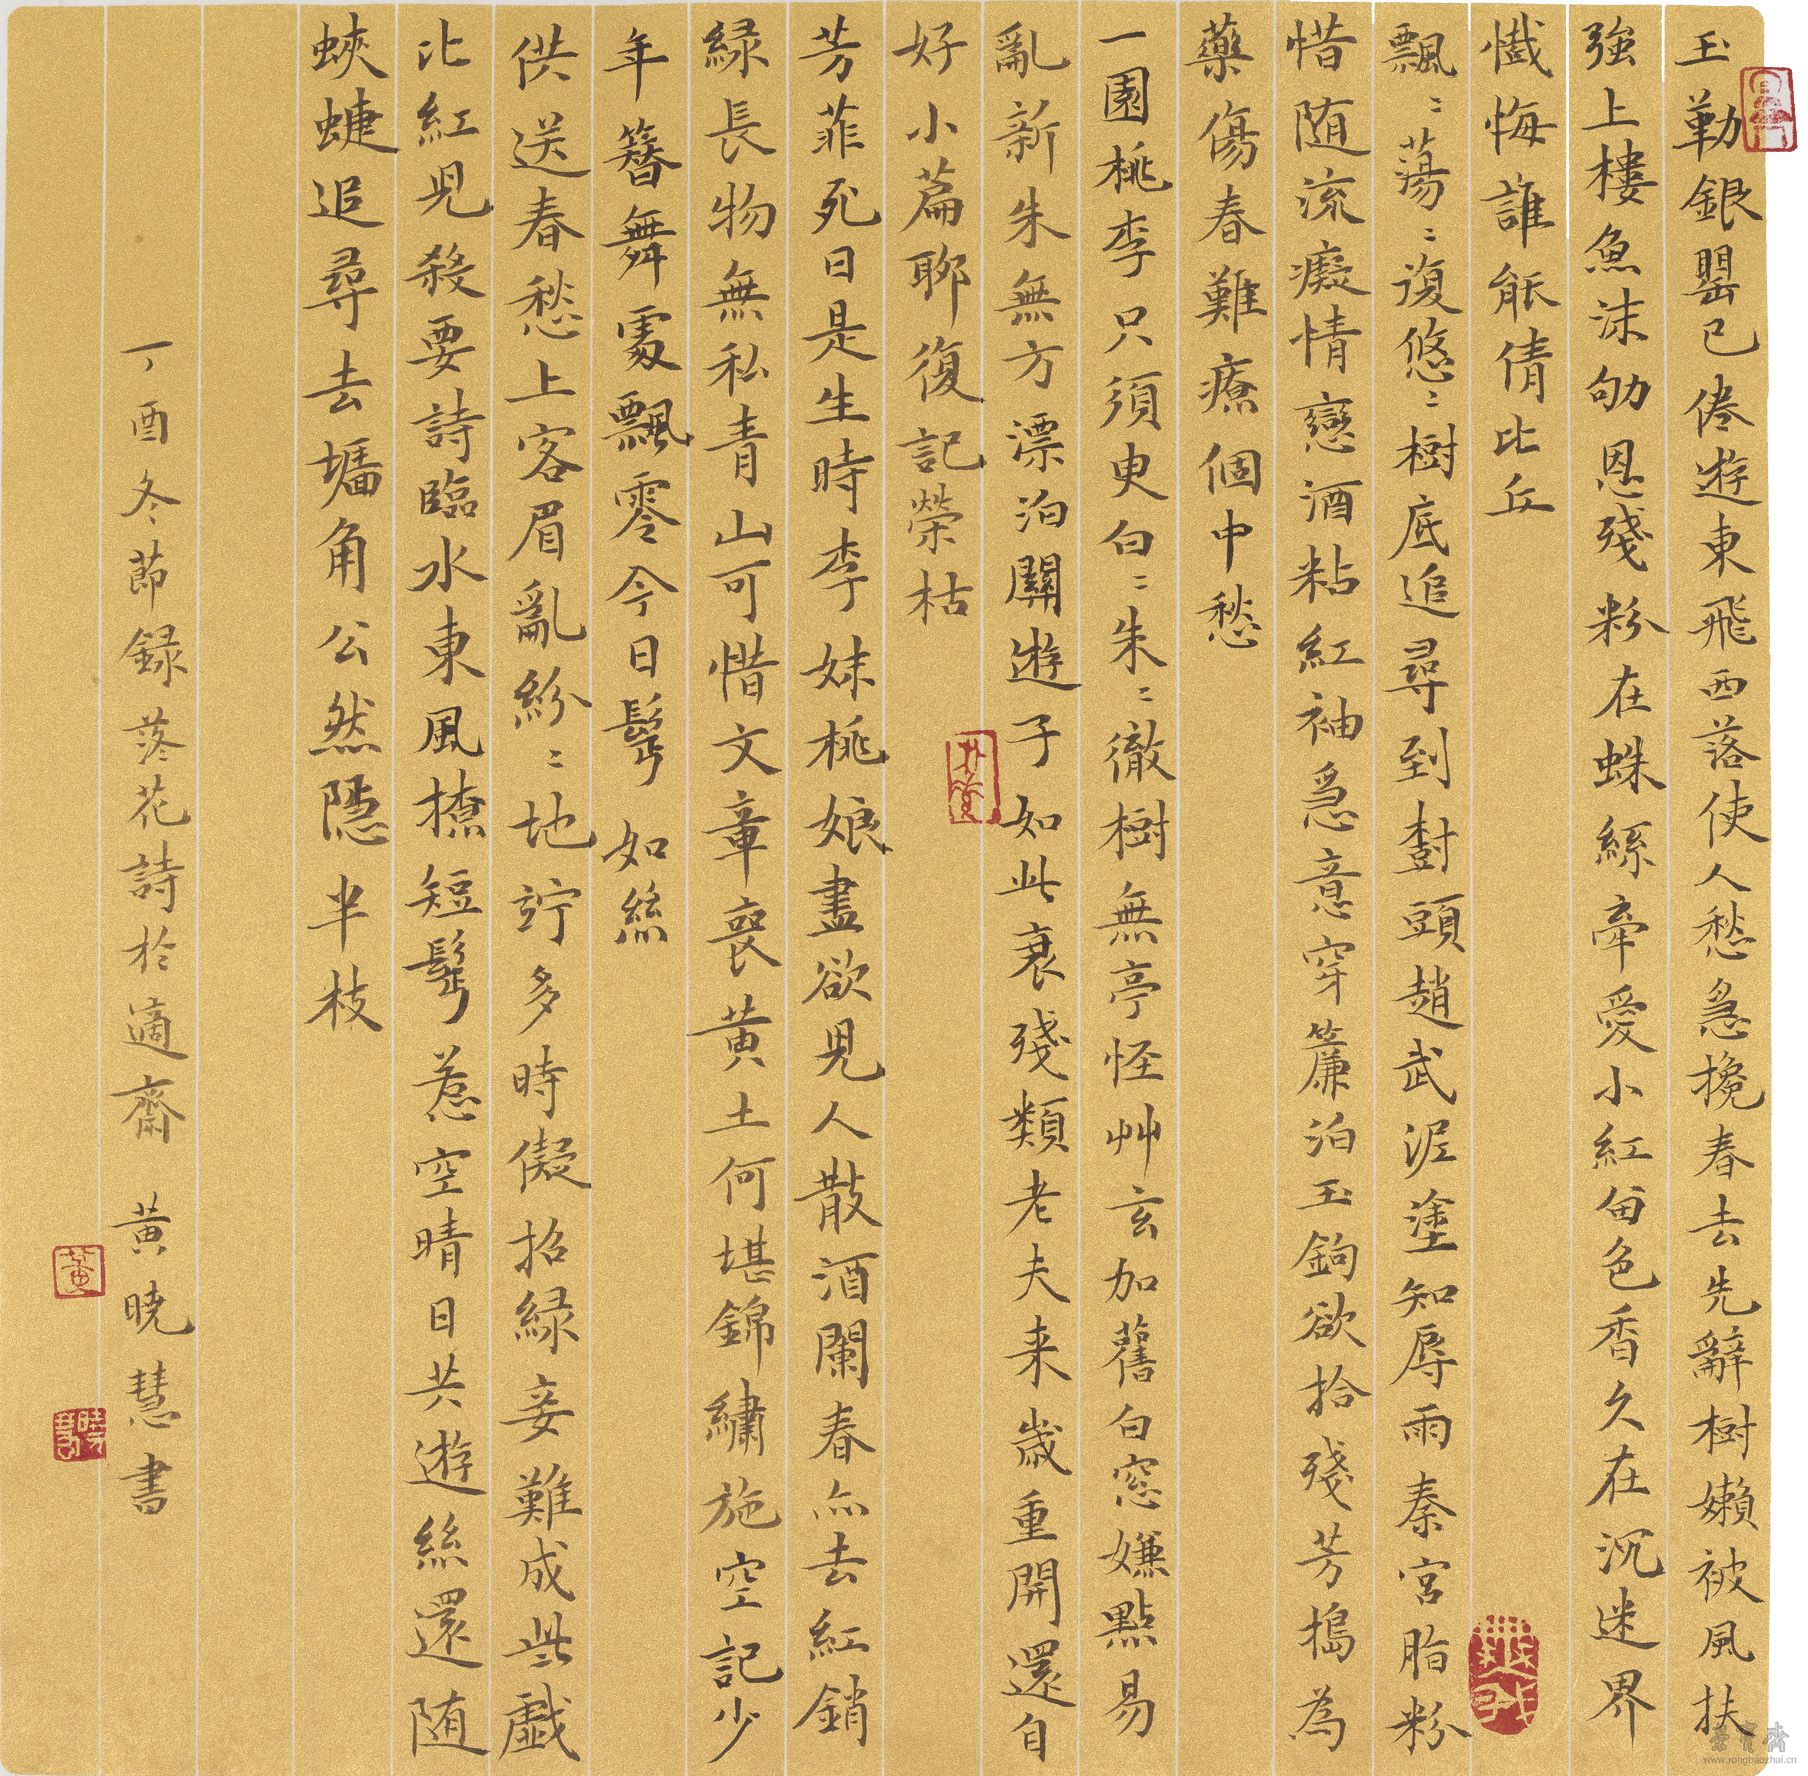 玉勒銀罌已倦遊東飛西落使人愁急攙春去先辭樹嬾被風扶
強上樓魚沫劬恩殘粉在蛛絲牽愛小紅留色香久在沉迷界
懺悔誰能倩比丘
飄〻蕩〻復悠〻樹底追尋到樹頭趙武泥塗知辱雨秦宮脂粉
惜随流癡情戀酒粘紅袖急意穿簾泊玉鉤欲拾殘芳搗為
藥傷春難療個中愁
一園桃李只須臾白〻朱〻徹樹無亭怪艸玄加舊白窓嫌點易
亂新朱無方漂泊關遊子如此衰殘類老夫来歲重開還自
好小篇聊復記榮枯
芳菲死日是生時李妹桃娘盡欲兒人散酒闌春亦去紅銷
緑長物無私青山可惜文章喪黄土何堪錦繡施空記少
年簪舞處飄零今日鬢如絲
供送春愁上客眉亂紛〻地竚多時儗招緑妾難成些戲
比紅兒殺要詩臨水東風撩短鬢惹空晴日共遊絲還随
蛺蜨追尋去墻角公然隱半枝
丁酉冬節録落花詩於適齋 黄曉慧書
www.rongbaozhai.cn